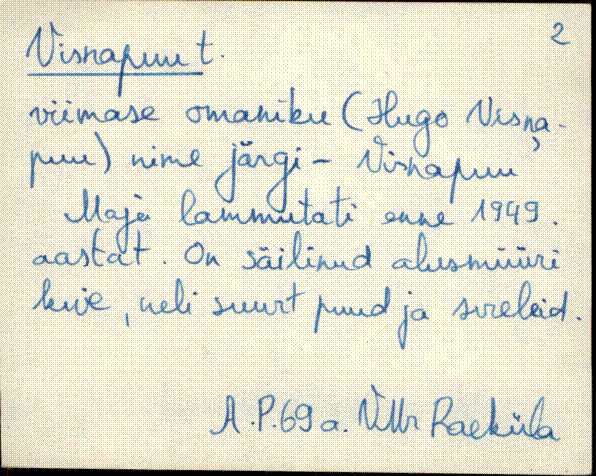 2
Visnapuu t.
viimase omaniku (Hugo Visna-
puu) nime järgi - Visnapuu
Maja lammutati enne 1949.
aastat. On säilinud alusmüüri
kive, neli suurt puud ja sireleid.
A.P. 69 a. Raeküla